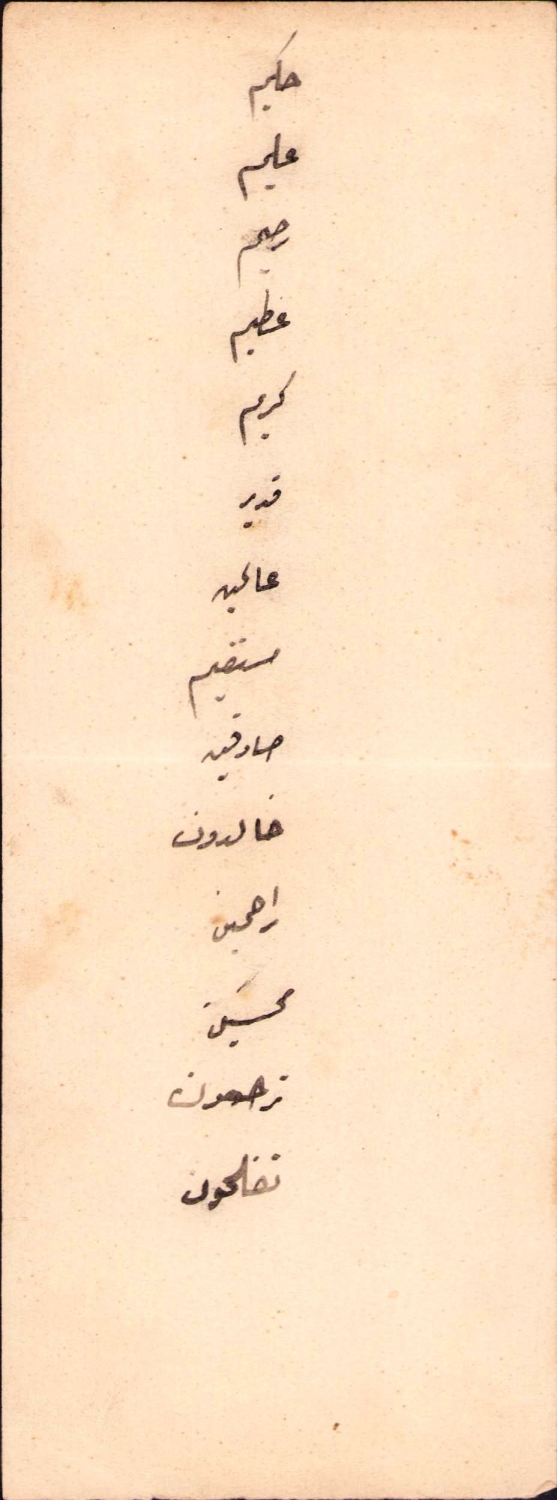 حكيم
عليم
رحيم
عظيم
كريم
قدير
عالمين
مستقيم
صادقين
خالدون
راحمين
محسنين
ترحمون
تفلحون